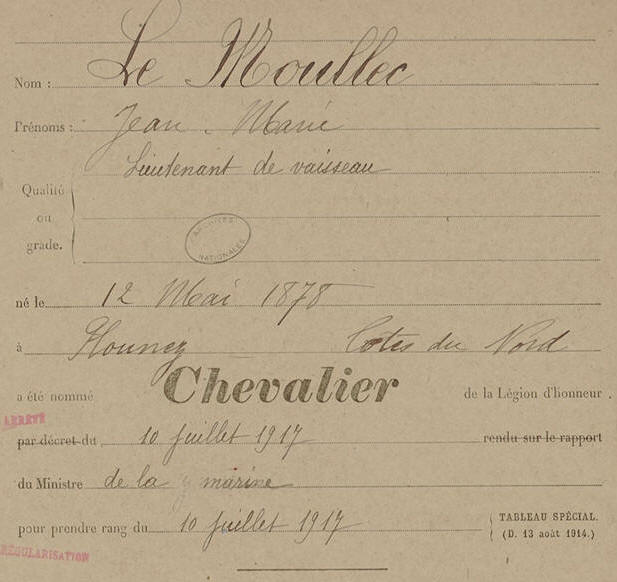 Nom : Le Moullec
Prénoms : Jean-Marie
Lieutenant de vaisseau
Qualité
ou
grade.
ARCHIVES NATIONALES
né le 12 Mai 1878
à Plounez Cotes du Nord
a été nommé Chevalier de la Légion d'honneur.
ARRÊTÉ
par décret du 10 juillet 1917 rendu sur le rapport
du Ministre de la marine
pour prendre rang du 10 juillet 1917 TABLEAU SPÉCIAL.
(D. 13 août 1914.)
RÉGULARISATION